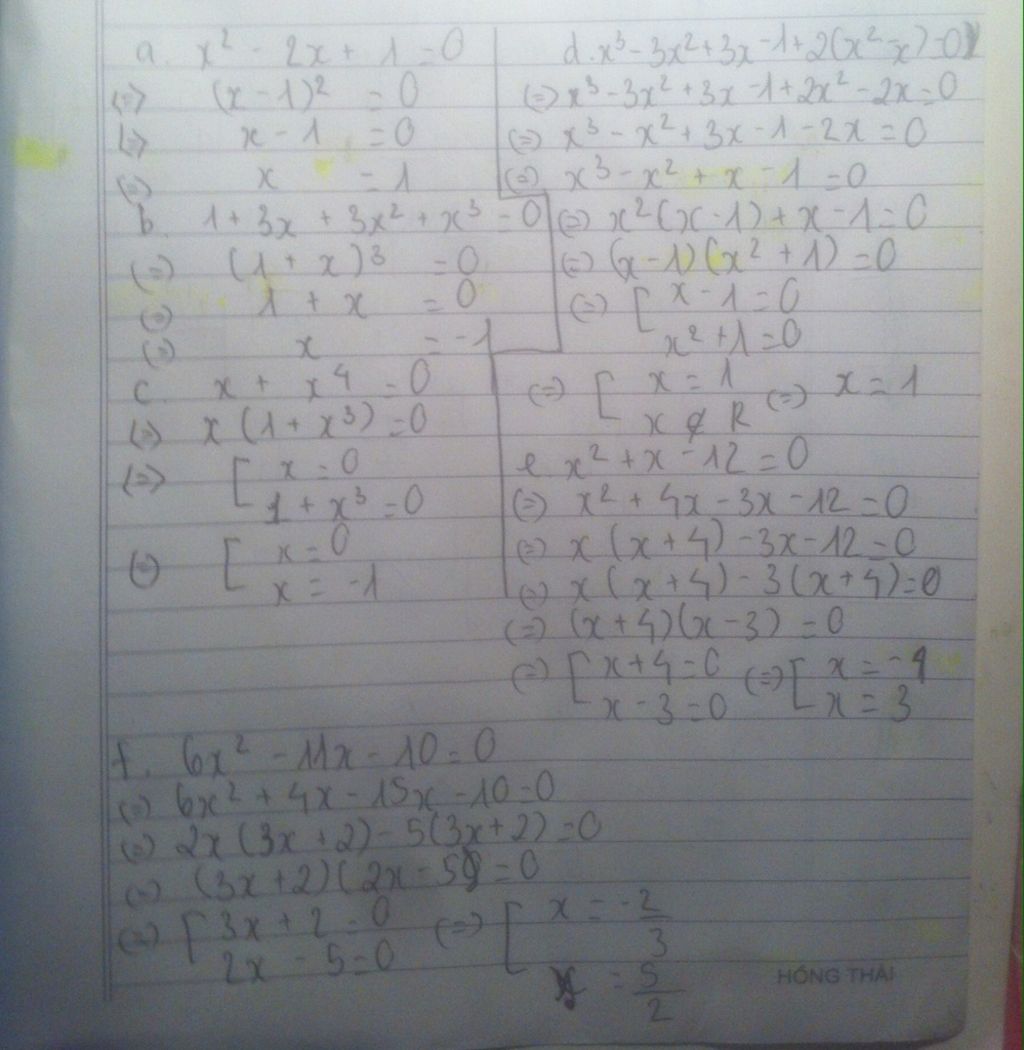 a. x² - 2x + 1 = 0
(=) (x - 1)² = 0
(=) x - 1 = 0
(=) x = 1
b. 1 + 3x + 3x² + x³ = 0
(=) (1 + x)³ = 0
(=) 1 + x = 0
(=) x = -1
c. x + x⁴ = 0
(=) x (1 + x³) = 0
(=) [ x = 0
1 + x³ = 0
(=) [ x = 0
x = -1
d. x³ - 3x² + 3x - 1 + 2(x² - x) = 0
(=) x³ - 3x² + 3x - 1 + 2x² - 2x = 0
(=) x³ - x² + 3x - 1 - 2x = 0
(=) x³ - x² + x - 1 = 0
(=) x² (x - 1) + x - 1 = 0
(=) (x - 1) (x² + 1) = 0
(=) [ x - 1 = 0
x² + 1 = 0
(=) [ x = 1 (=) x = 1
x ∉ R
e. x² + x - 12 = 0
(=) x² + 4x - 3x - 12 = 0
(=) x (x + 4) - 3x - 12 = 0
(=) x (x + 4) - 3 (x + 4) = 0
(=) (x + 4) (x - 3) = 0
(=) [ x + 4 = 0 (=) [ x = -4
x - 3 = 0 x = 3
f. 6x² - 11x - 10 = 0
(=) 6x² + 4x - 15x - 10 = 0
(=) 2x (3x + 2) - 5(3x + 2) = 0
(=) (3x + 2) (2x - 5) = 0
(=) [ 3x + 2 = 0 (=) [ x = -2/3
2x - 5 = 0 x = 5/2
HỒNG THÁI